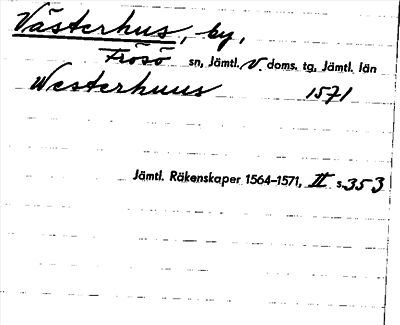 Västerhus, by,
Frösö sn, Jämtl. V. doms. tg, Jämtl. län
Westerhuus 1571
Jämtl. Räkenskaper 1564-1571, II s. 353